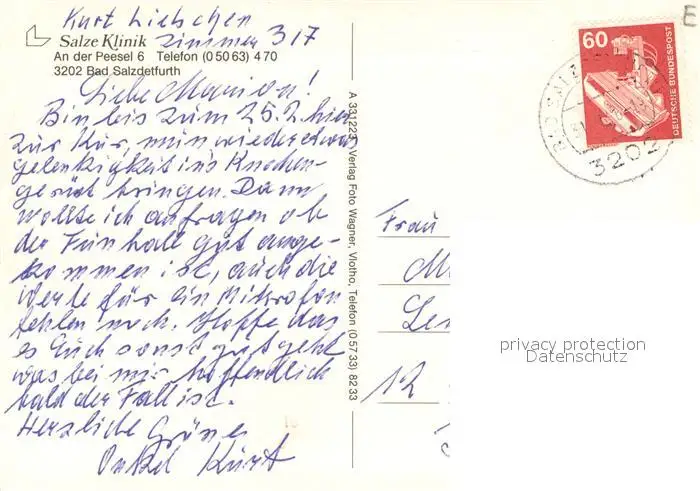 Kurt Lieb­schen
Salze Klinik Zimmer 317
An der Peesel 6 Telefon (0 50 63) 4 70
3202 Bad Salzdetfurth
Liebe Marion!
Bin bis zum 25.2. hier
zur Kur, nun wieder etwas
gelenkigkeit in's Knochen-
gerüst bringen. Dann
wollte ich anfragen ob
der Fün hall gut ange-
kommen ist, auch die
Werte für ein Mikrofon
fehlen noch. Hoffe das
es Euch sonst gut geht
was bei mir hoffendlich
bald der Fall ist.
Herzliche Grüße
Onkel Kurt
A 331223 Verlag Foto Wagner, Vlotho, Telefon (0 57 33) 82 33
60
DEUTSCHE BUNDESPOST
3202
E
Frau
M
12
privacy protection
Datenschutz